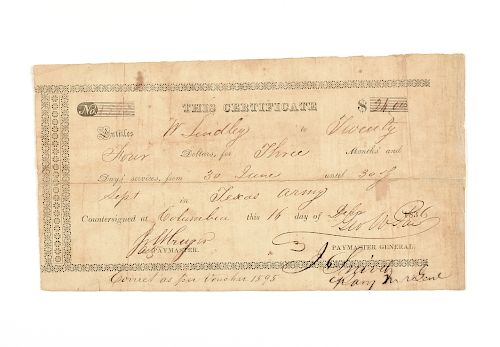 No.
THIS CERTIFICATE $ 24.00
Entitles W Lindley to Twenty
Four Dollars, for Three Months and
Day's services, from 30 June until 30 of
Sept in Texas Army
Countersigned at Columbia this 16 day of 1836
PAYMASTER. PAYMASTER GENERAL.
Correct as per Voucher 1595